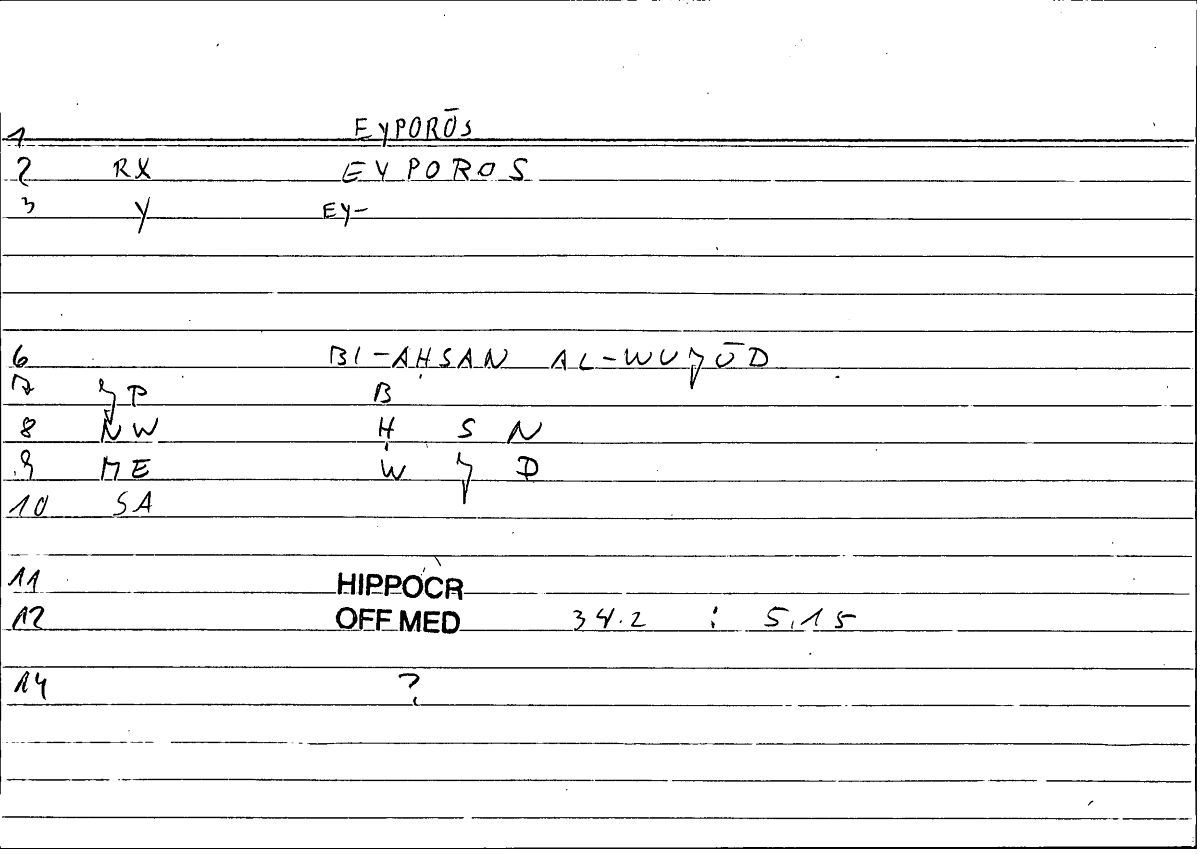 1 EYPORŌS
2 RX EYPOROS
3 Y EY-
6 BI-AḤSAN AL-WUǦŪD
7 ǦP B
8 NW Ḥ S N
9 ME W Ǧ D
10 SA
11 HIPPOCR
12 OFF MED 34.2 : 5,15
14 ?